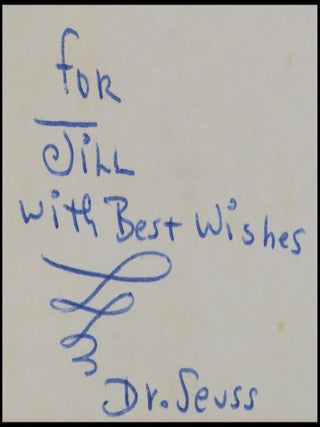 for
Jill
with Best Wishes
Dr. Seuss